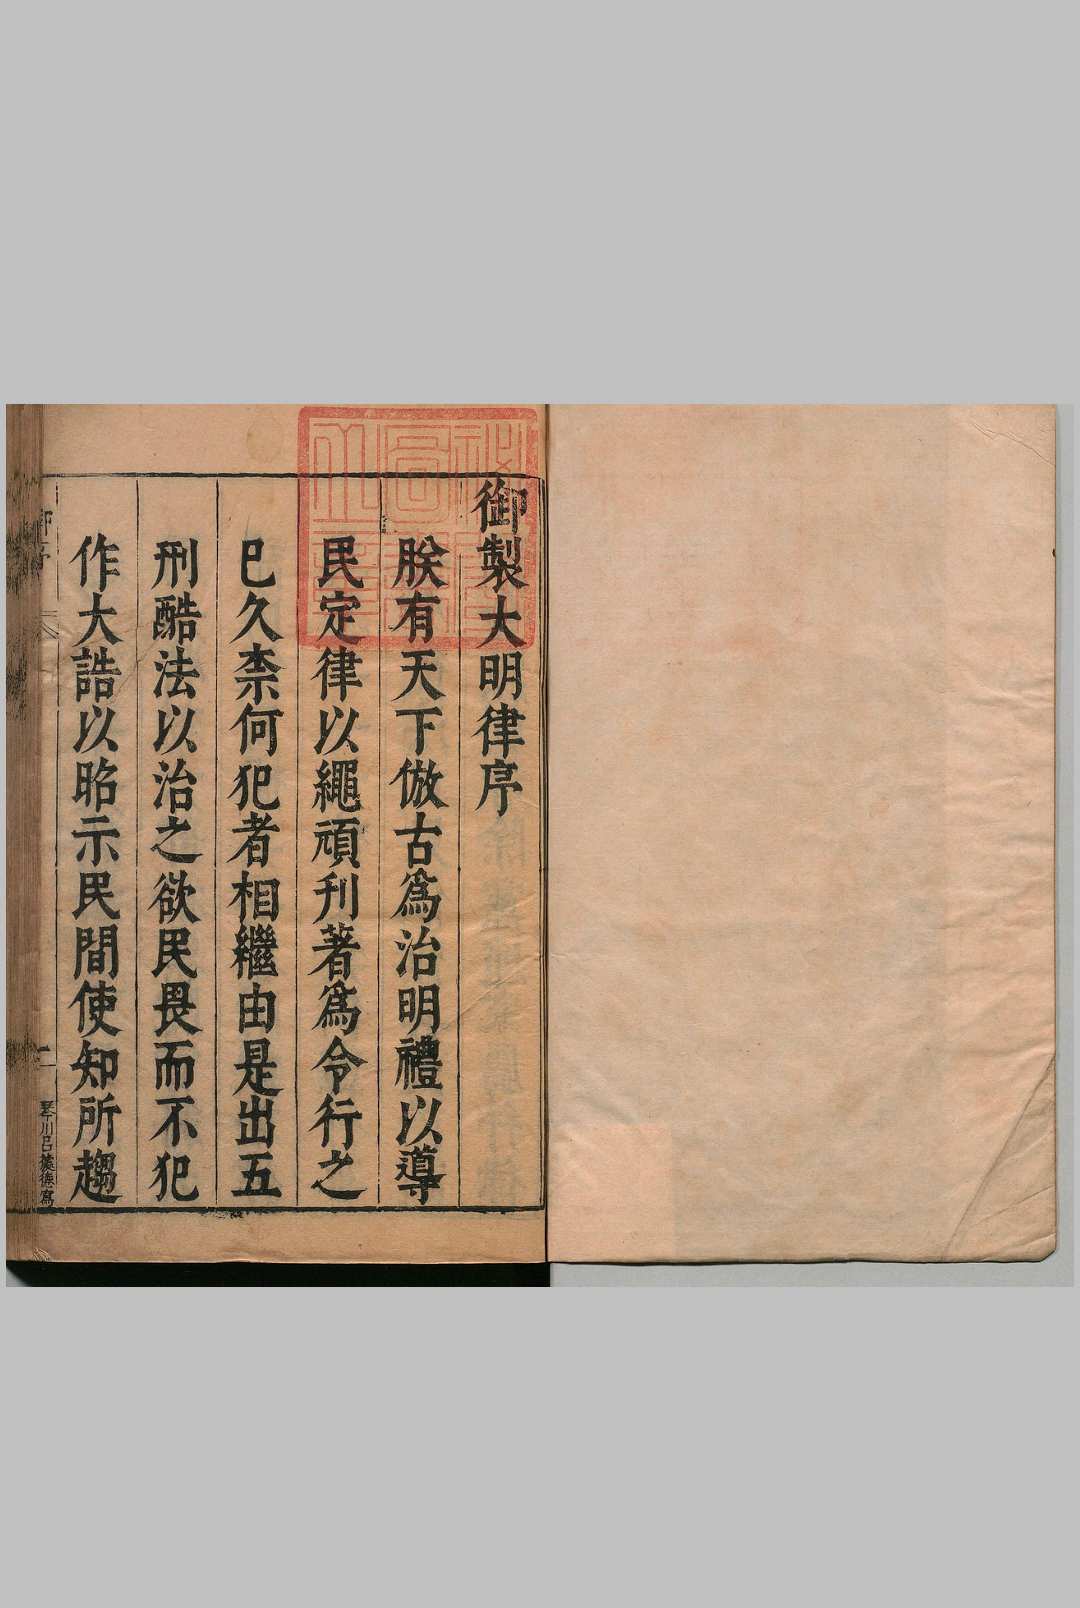 御製大明律序
朕有天下倣古爲治明禮以導
民定律以繩頑刋著爲令行之
巳久柰何犯者相繼由是出五
刑酷法以治之欲民畏而不犯
作大誥以昭示民間使知所趨
御序
二